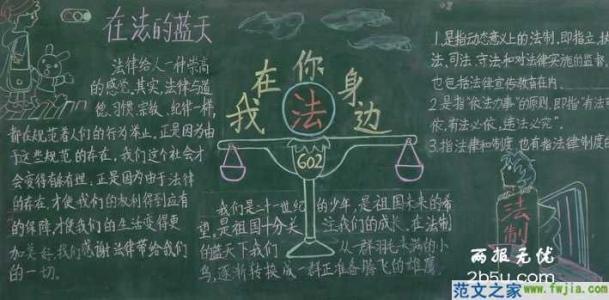 在法的蓝天
法律给人一种崇高
的感觉,其实,法律与道
德、习惯、宗教、纪律一样,
都在规范着人们的行为举止,正是因为由
于这些规范的存在,我们这个社会才
会变得有条有理,正是因为由于法律
的存在,才使我们的权利得到应有
的保障,才使我们的生活变得更
加美好,我们感谢法律带给我们
的一切。
我在你身边
法
602
我们是二十一世纪的少年,是祖国未来的希
望,是祖国十分关注我们的成长,在法制
的蓝天下我们从一群羽毛未满的小
鸟,逐渐转换成一群正准备腾飞的雄鹰。
1.是指动态意义上的法制,即指立、执
法、司法、守法和对法律实施的监督,
也包括法律宣传教育在内。
2.是指“依法办事”的原则,即指“有法
依,有法必依,违法必究”。
3.指法律和制度 也有指法律制度的
法制
两报无优
2b5u.com
范文之家
www.fwjia.com